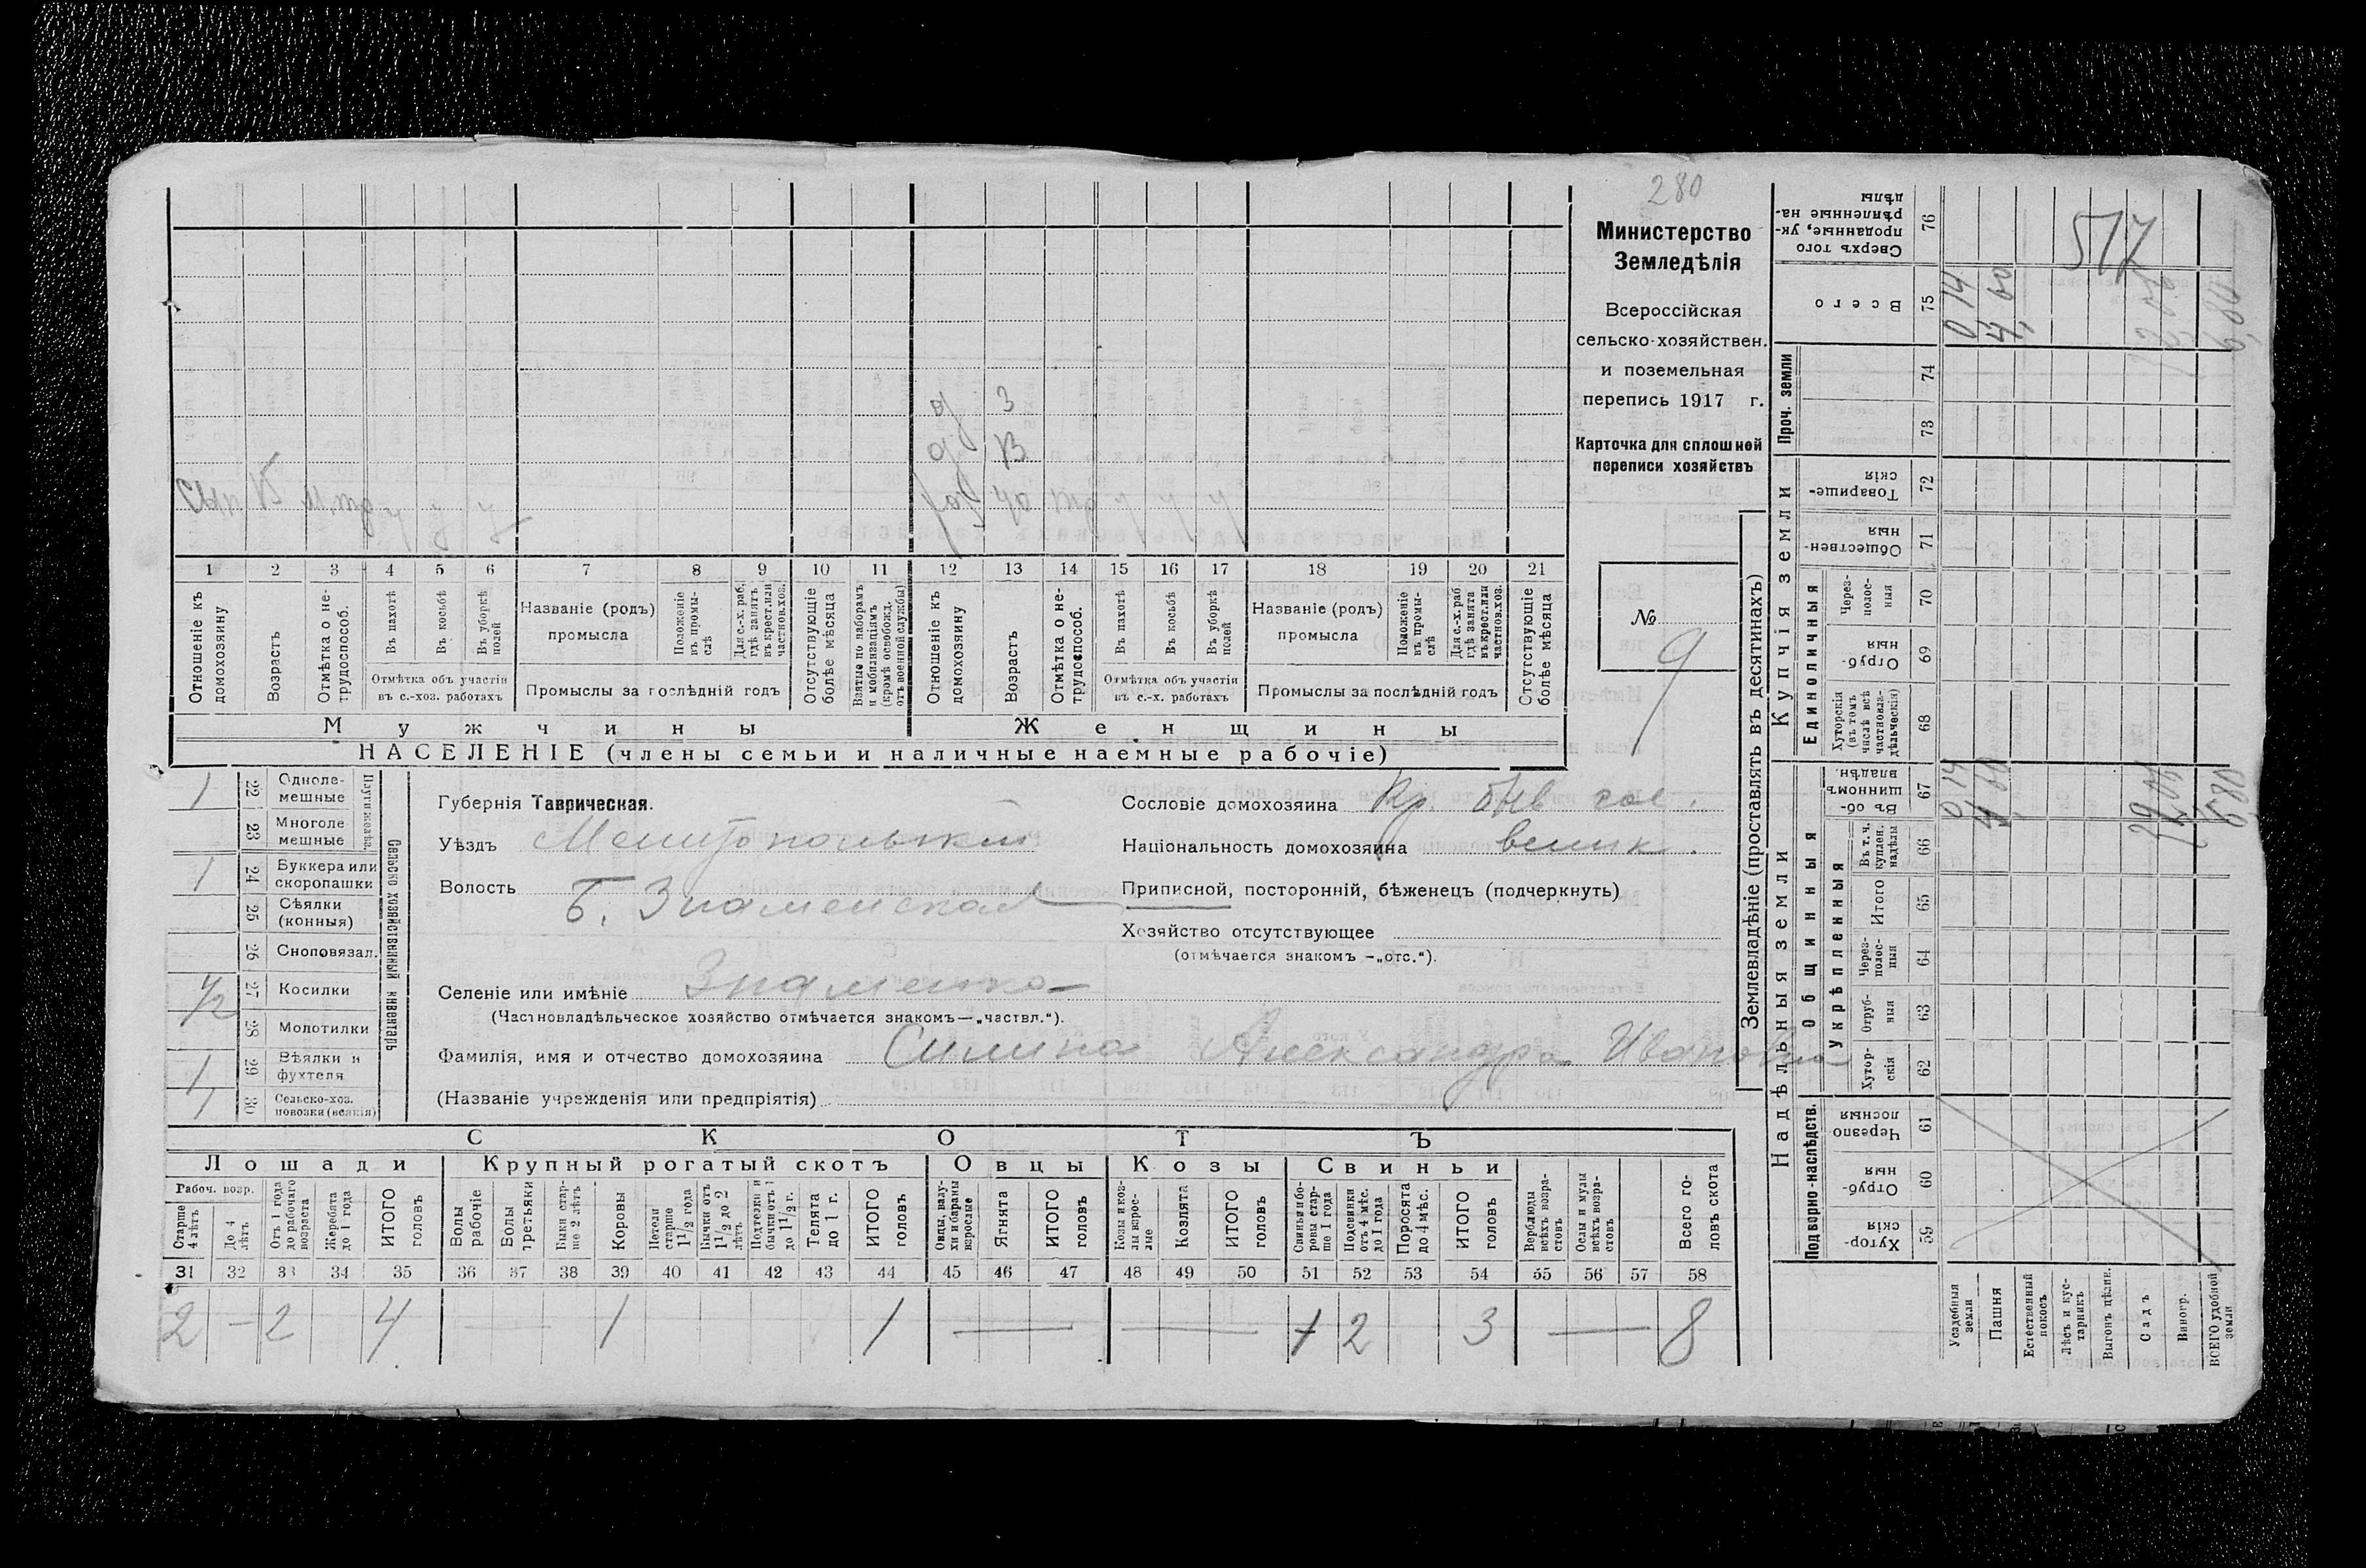 280
Министерство
Земледѣлія
Всероссійская
сельско-хозяйствен.
и поземельная
перепись 1917 г.
Карточка для сплошной
переписи хозяйствъ
№
9
д 3
д
сын
40
1 2 3 4 5 6 7 8 9 10 11 12 13 14 15 16 17 18 19 20 21
Отношеніе къ домохозяину
Возрастъ
Отмѣтка о нетрудоспособ.
Въ пахотѣ
Въ косьбѣ
Въ уборкѣ полей
Отмѣтка объ участіи въ с.-хоз. работахъ
Названіе (родъ) промысла
Положеніе въ промыслѣ
Для с.-х. раб. гдѣ занятъ въ крест. или частнов. хоз.
Промыслы за послѣдній годъ
Отсутствующіе болѣе мѣсяца
Взятые по наборамъ и мобилизаціямъ (кромѣ освобожд. отъ военной службы)
Отношеніе къ домохозяину
Возрастъ
Отмѣтка о нетрудоспособ.
Въ пахотѣ
Въ косьбѣ
Въ уборкѣ полей
Отмѣтка объ участіи въ с.-х. работахъ
Названіе (родъ) промысла
Положеніе въ промыслѣ
Для с.-х. раб. гдѣ занята въ крест. или частнов. хоз.
Промыслы за послѣдній годъ
Отсутствующіе болѣе мѣсяца
Мужчины Женщины
НАСЕЛЕНІЕ (члены семьи и наличные наемные рабочіе)
1 22 Однолемешные
23 Многолемешные
1 24 Буккера или скоропашки
25 Сѣялки (конныя)
26 Сноповязал.
1/2 27 Косилки
28 Молотилки
1 29 Вѣялки и фухтеля
1 30 Сельско-хоз. повозки (всякія)
Сельско хозяйственный инвентарь
Губернія Таврическая.
Уѣздъ Мелитопольскій
Волость Б. Знаменская
Селеніе или имѣніе Знаменка
(Частновладѣльческое хозяйство отмѣчается знакомъ—„частвл.“).
Фамилія, имя и отчество домохозяина Силина Александра Ивановна
(Названіе учрежденія или предпріятія)
Сословіе домохозяина Кр
Національность домохозяина велик.
Приписной, посторонній, бѣженецъ (подчеркнуть)
Хозяйство отсутствующее
(отмѣчается знакомъ -„отс.“).
СКОТЪ
Лошади Крупный рогатый скотъ Овцы Козы Свиньи
Рабоч. возр.
Старше 4 лѣтъ
До 4 лѣтъ
Отъ 1 года до рабочаго возраста
Жеребята до 1 года
ИТОГО головъ
Волы рабочіе
Волы третьяки
Быки старше 2 лѣтъ
Коровы
Нетели старше 1 1/2 года
Бычки отъ 1 1/2 до 2 лѣтъ
Подтелки и бычки отъ 1 до 1 1/2 г.
Телята до 1 г.
ИТОГО головъ
Овцы, валухи и бараны взрослые
Ягнята
ИТОГО головъ
Козы и козлы взрослые
Козлята
ИТОГО головъ
Свиньи и боровы старше 1 года
Подсвинки отъ 4 мѣс. до 1 года
Поросята до 4 мѣс.
ИТОГО головъ
Верблюды всѣхъ возрастовъ
Ослы и мулы всѣхъ возрастовъ
Всего головъ скота
31 32 33 34 35 36 37 38 39 40 41 42 43 44 45 46 47 48 49 50 51 52 53 54 55 56 57 58
2 — 2 4 — 1 1 — — 1 2 3 — 8
Землевладѣніе (проставлять въ десятинахъ)
Надѣльныя земли Купчія земли Проч. земли
Подворно-наслѣдств. Общинныя Единоличныя
Укрѣпленныя
Сверхъ того проданные, укрѣпленные надѣлы 76
Всего 75
74
73
Товарищескія 72
Общественныя 71
Черезполосныя 70
Отрубныя 69
Хуторскія (въ томъ числѣ всѣ частновладѣльческія) 68
Въ общинномъ владѣн. 67
Въ т. ч. куплен. надѣлы 66
Итого 65
Черезполосныя 64
Отрубныя 63
Хуторскія 62
Черезполосныя 61
Отрубныя 60
Хуторскія 59
517
0 14
6,80
0 14
6,80
Усадебныя земли
Пашня
Естественный покосъ
Лѣсъ и кустарникъ
Выгонъ цѣлин.
Садъ
Виногр.
ВСЕГО удобной земли